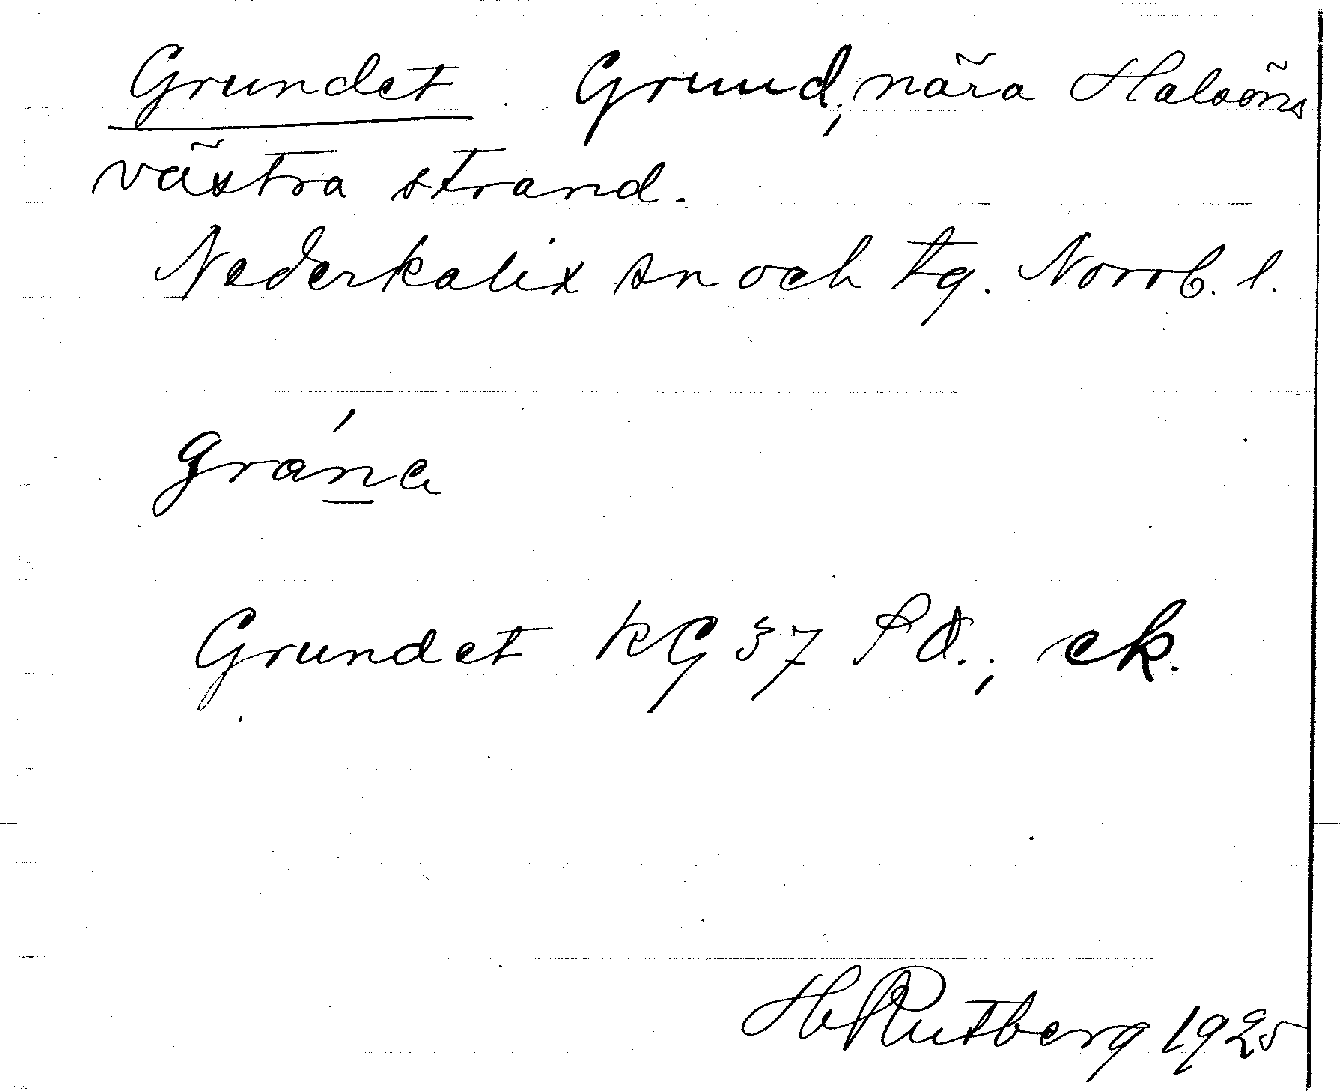 Grundet Grund, nära Halsöns
västra strand.
Nederkalix sn och tg. Norrb. l.
grána
Grundet KG 37 S.O., ek.
H Rutberg 1925